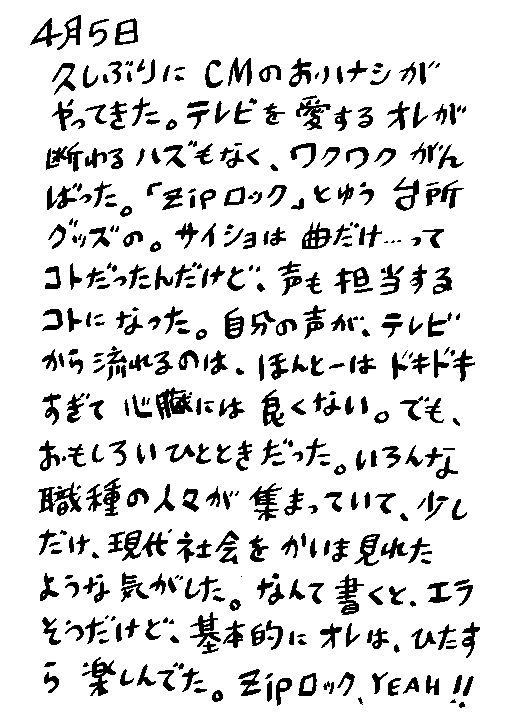 4月5日
久しぶりに CMのおハナシが
やってきた。テレビを愛するオレが
断わるハズもなく、ワクワクがん
ばった。「Zipロック」とゆう台所
グッズの。サイショは曲だけ…って
コトだったんだけど、声も担当する
コトになった。自分の声が、テレビ
から流れるのは、ほんとーはドキドキ
すぎて心臓には良くない。でも、
おもしろいひとときだった。いろんな
職種の人々が集まっていて、少し
だけ、現代社会をかいま見れた
ような気がした。なんて書くと、エラ
そうだけど、基本的にオレは、ひたす
ら楽しんでた。Zipロック、YEAH!!